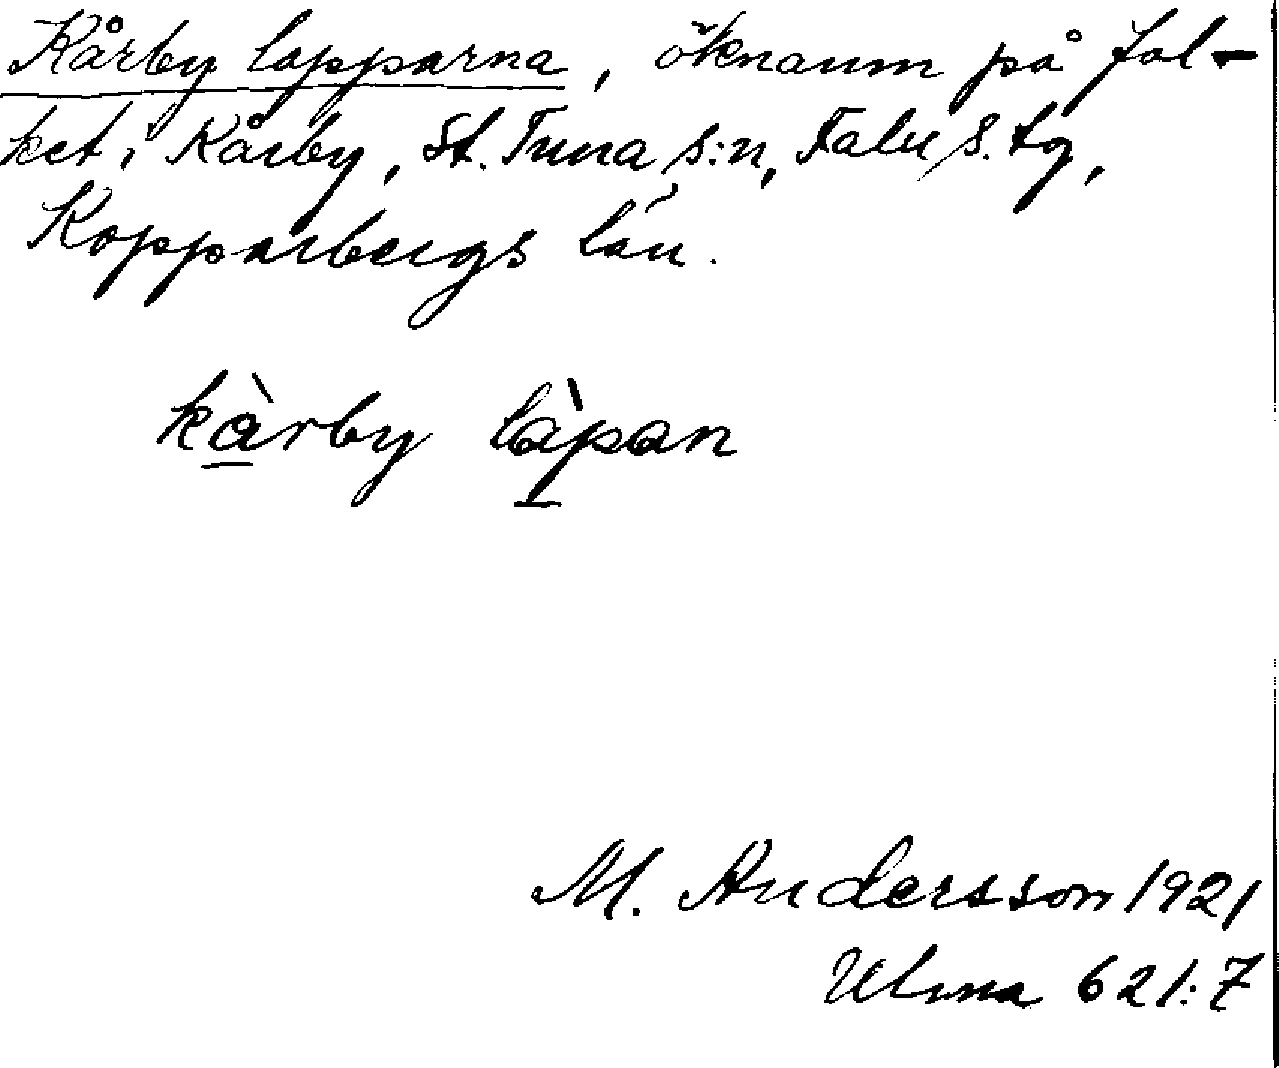 Kårby lopparna, öknamn på fol-
ket i Kårby, St. Tuna s:n, Falu s. tg,
Kopparbergs län.
kàrby làpan
M. Andersson 1921
Ulma 621:7